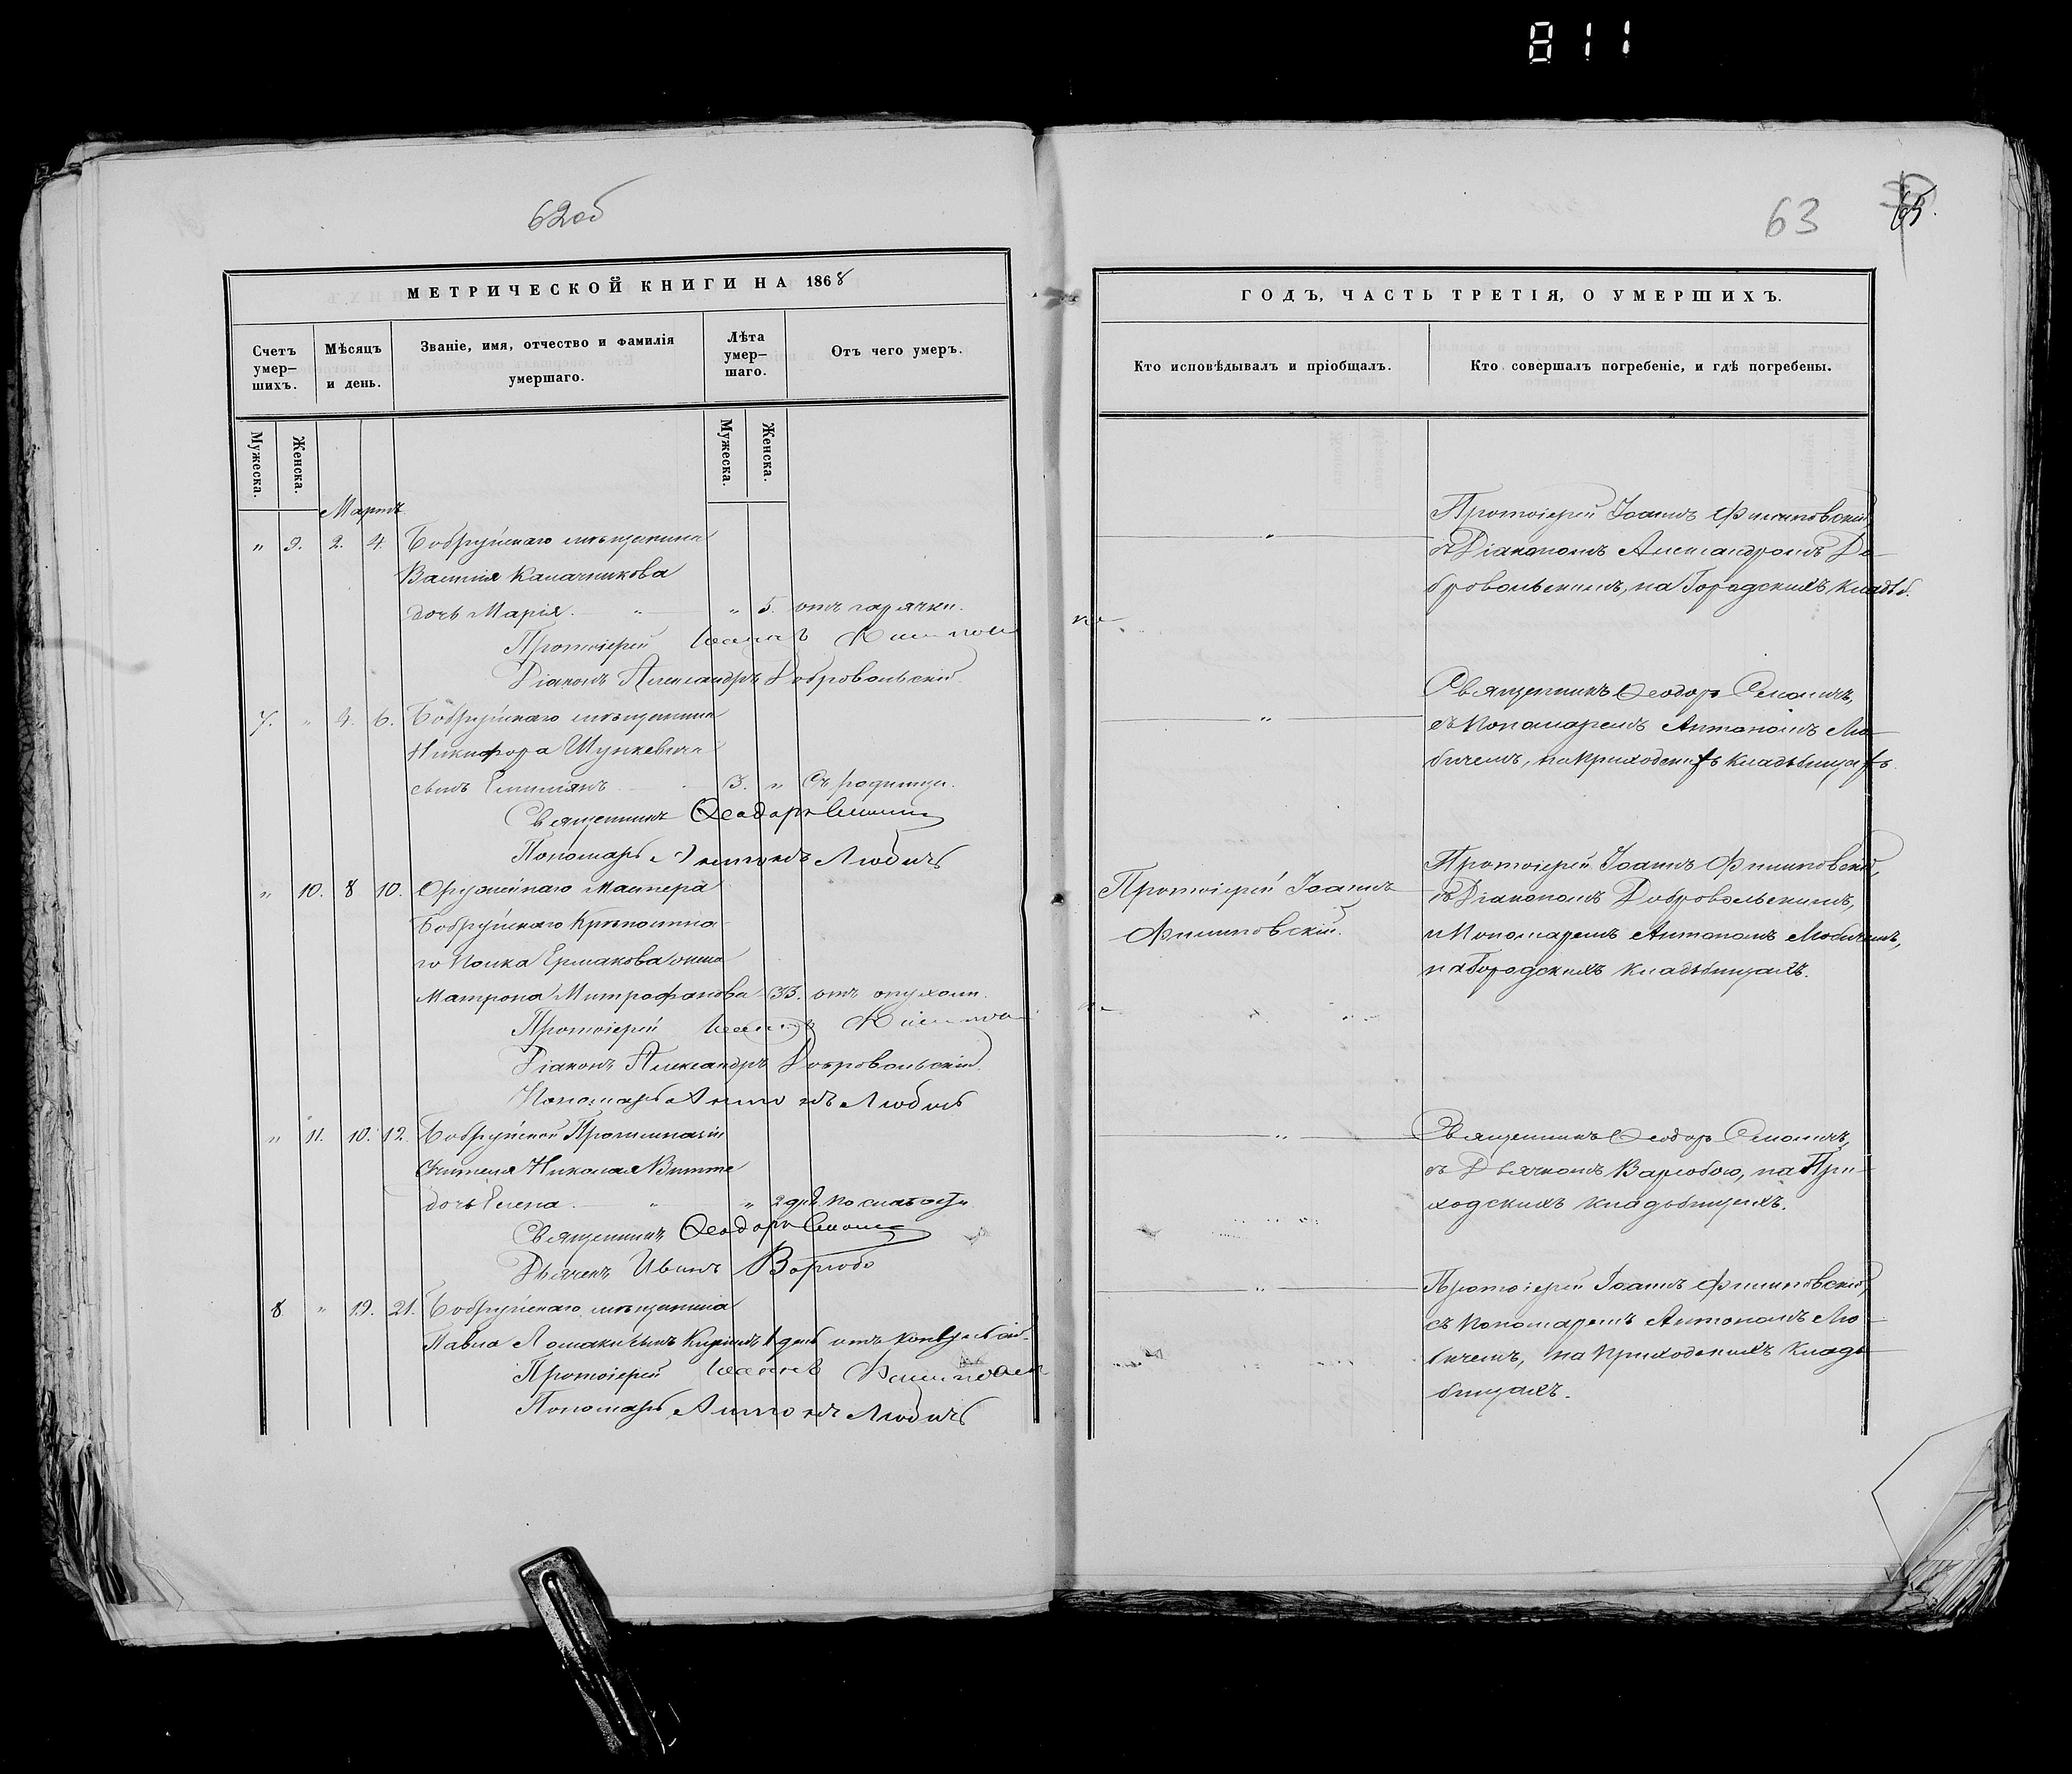 811
62об
МЕТРИЧЕСКОЙ КНИГИ НА 1868
Счетъ умер-шихъ.
Мѣсяцъ и день.
Званіе, имя, отчество и фамилія умершаго.
Лѣта умер-шаго.
Отъ чего умеръ.
Мужеска.
Женска.
Мужеска.
Женска.
Мартъ
" 9. 2. 4. Бобруйскаго мѣщанина
Василія Калачникова
дочь Марія. " " 5. отъ горячки.
Протоіерей Іоаннъ
Діаконъ Александръ Добровольскій
7. " 4. 6. Бобруйскаго мѣщанина
Никифора Шункевича
сынъ Емиліянъ 3. " Съ родимца.
Священникъ Ѳеодоръ
Пономарь Антонъ Любичъ
" 10. 8 10. Оружейнаго Мастера
Бобруйскаго Крѣпостна-
го Полка Ермакова жена
Матрона Митрофанова 33. отъ опухоли.
Протоіерей Іоаннъ
Діаконъ Александръ Добровольскій.
Пономарь Антонъ Любичъ
" 11. 10. 12. Бобруйской Прогимназіи
Учителя Николая Витте
дочь Елена. " " 2 дн. по слабости
Священникъ Ѳеодоръ
Дьячекъ Иванъ
8 " 19. 21. Бобруйскаго мѣщанина
Павла сынъ 1 день отъ конвульсій.
Протоіерей Іоаннъ
Пономарь Антонъ Любичъ
63
65.
ГОДЪ, ЧАСТЬ ТРЕТІЯ, О УМЕРШИХЪ.
Кто исповѣдывалъ и пріобщалъ.
Кто совершалъ погребеніе, и гдѣ погребены.
Протоіерей Іоаннъ
" съ Діакономъ Александромъ До-
бровольскимъ, на Городскихъ Кладѣб.
Священникъ Ѳеодоръ
" съ Пономаремъ Антономъ Лю-
бичемъ, на Приходскихъ Кладѣбищахъ.
Протоіерей Іоаннъ
Протоіерей Іоаннъ
съ Діакономъ Добровольскимъ,
и Пономаремъ Антономъ Любичемъ,
на Городскихъ Кладѣбищахъ.
" Священникъ Ѳеодоръ
съ Дьячкомъ на При-
ходскихъ Кладѣбищахъ.
" Протоіерей Іоаннъ
съ Пономаремъ Антономъ Лю-
бичемъ, на Приходскихъ Кладѣ-
бищахъ.